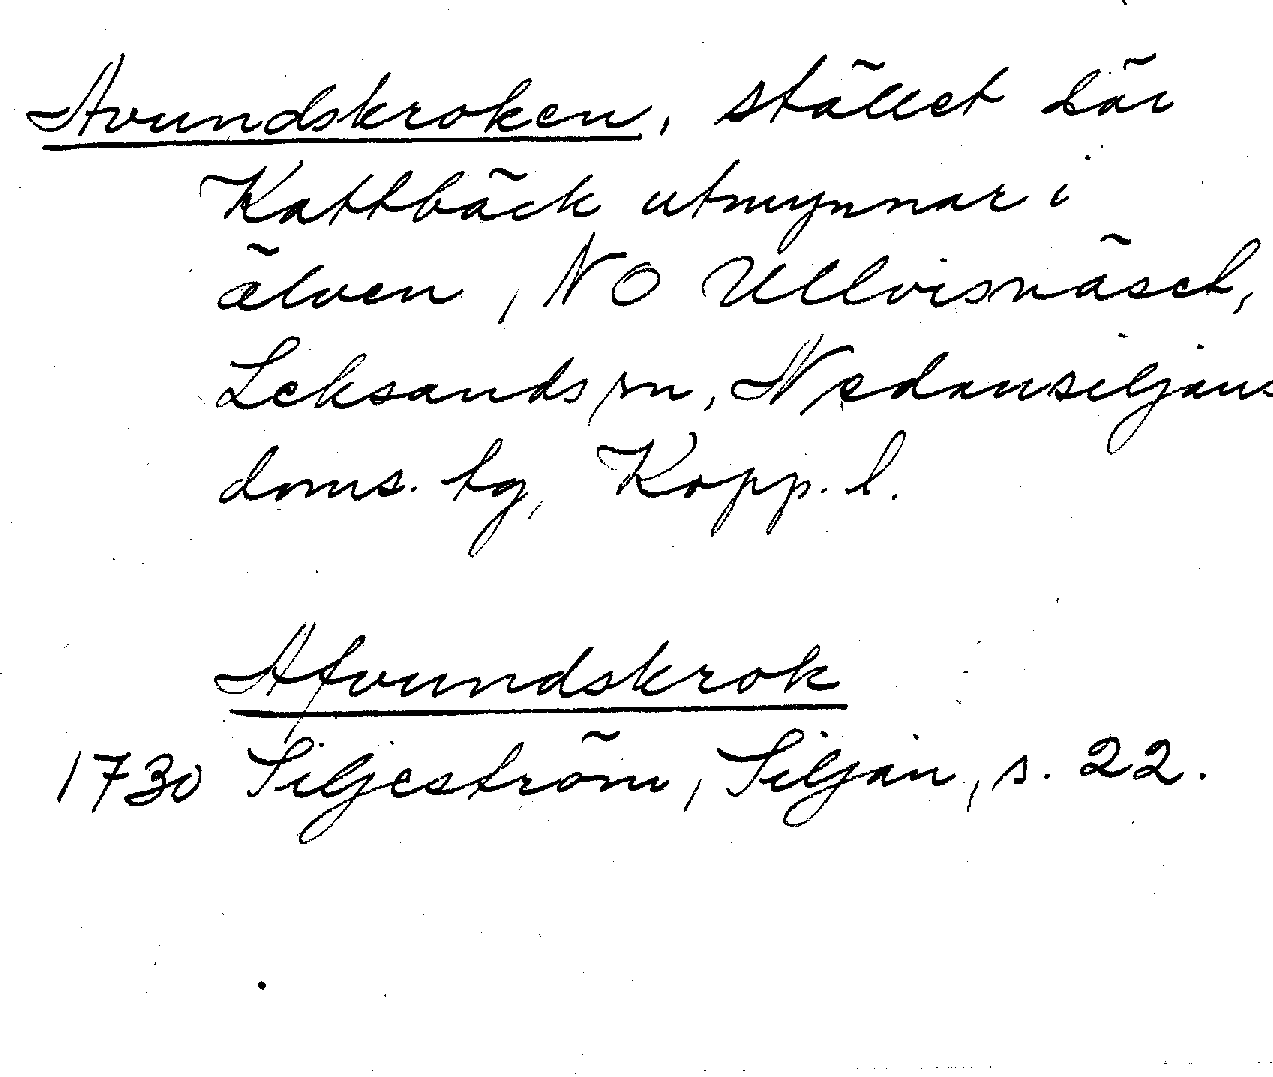 Avundskroken, stället där
Kattbäck utmynnar i
älven, NO Ullvisnäset,
Leksands sn, Nedansiljans
doms. tg, Kopp. l.
Afvundskrok
1730 Siljeström, Siljan, s. 22.